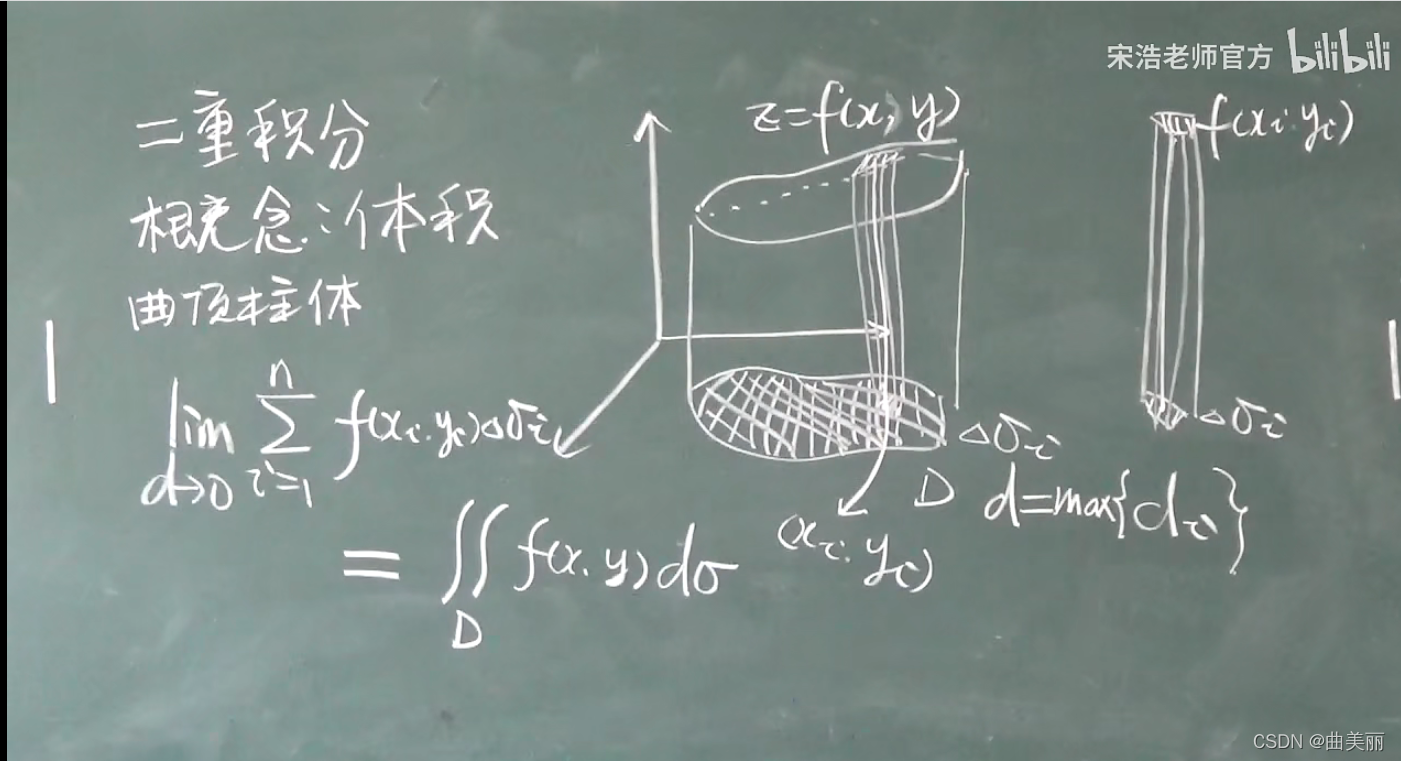 宋浩老师官方 bilibili
二重积分
概念:体积
曲顶柱体
lim d→0 n∑i=1 f(xi.yi)Δσi
= ∬D f(x.y)dσ
z=f(x,y)
Δσi
D
(xi.yi)
f(xi.yi)
Δσi
d=max{di}
CSDN @曲美丽